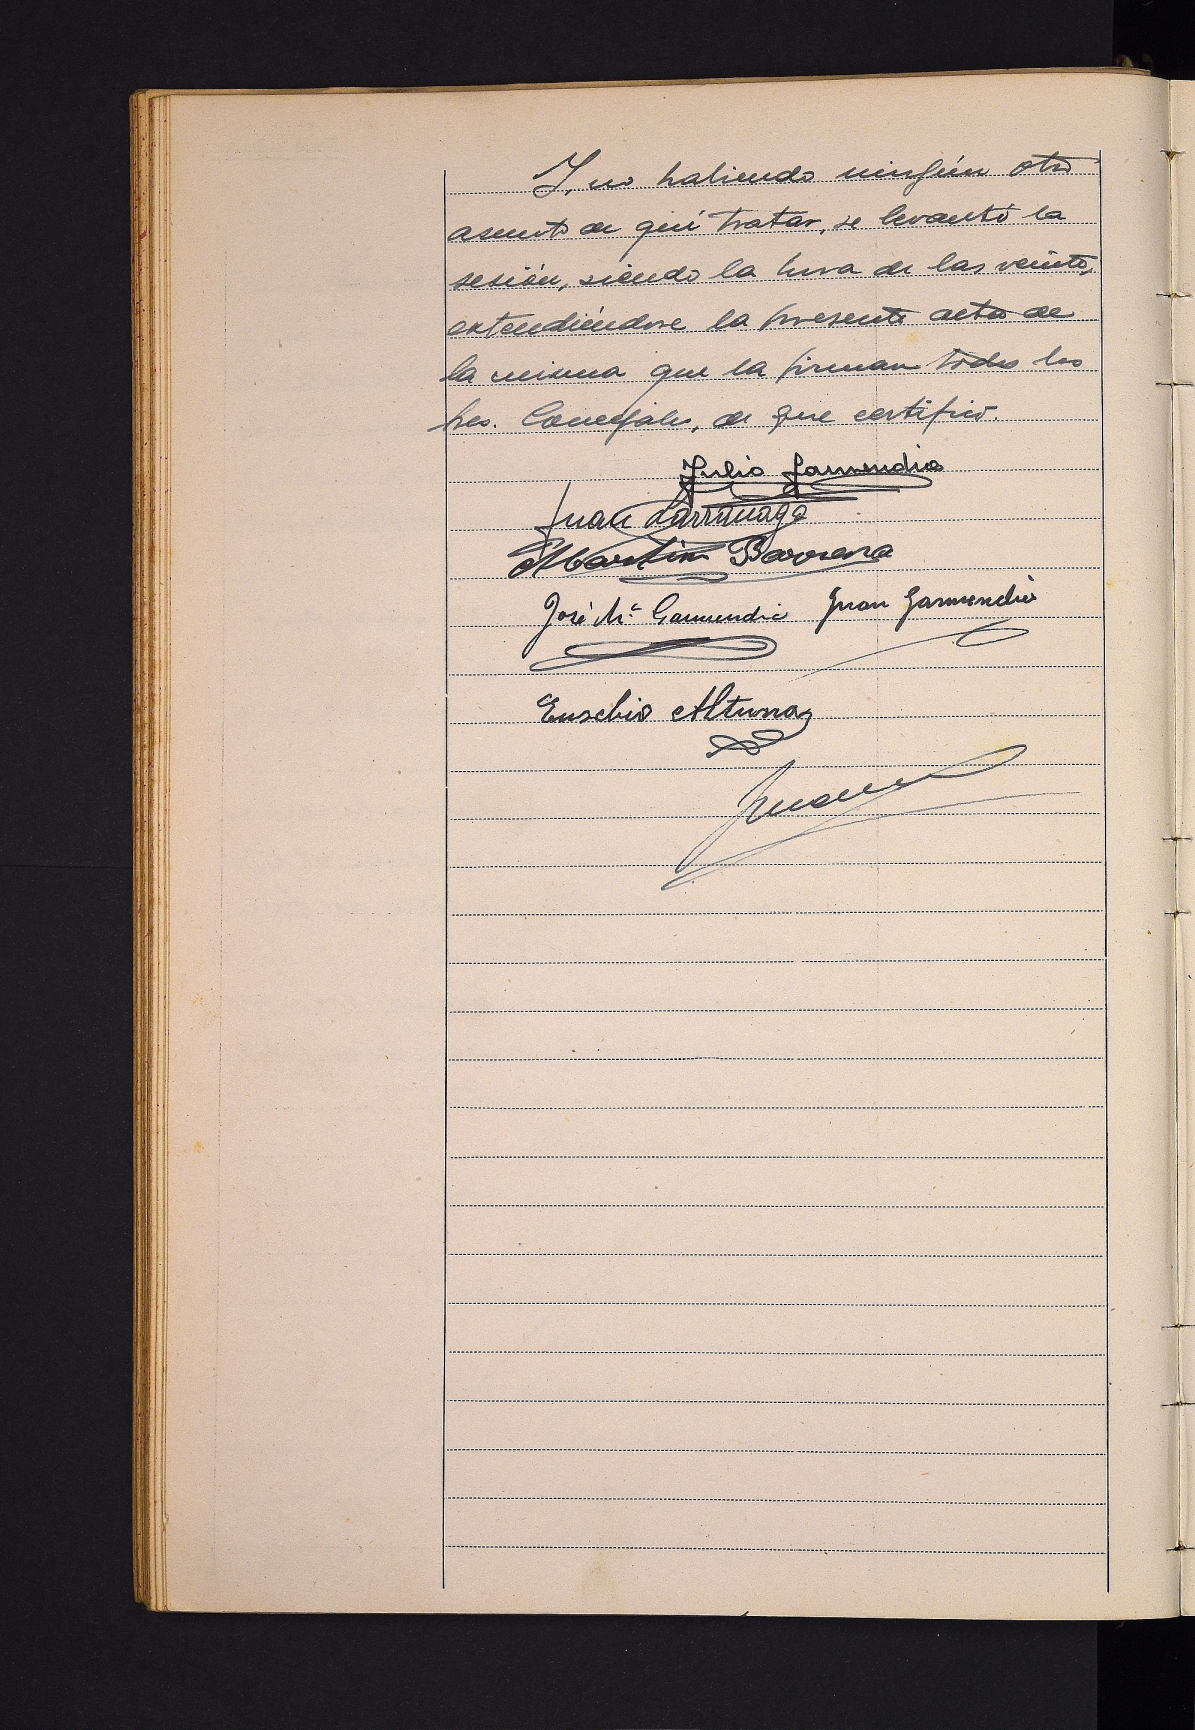 Y, no habiendo ningún otro
asunto de qué tratar, se levantó la
sesión, siendo la hora de las veinte,
extendiéndose la presente acta de
la misma que la firman todos los
Sres. Concejales, de que certifico.
Julio Gamendia
Juan Larrinaga
Martin Barrena
José Mª Gamundia Juan Garmendia
Eusebio Altuna